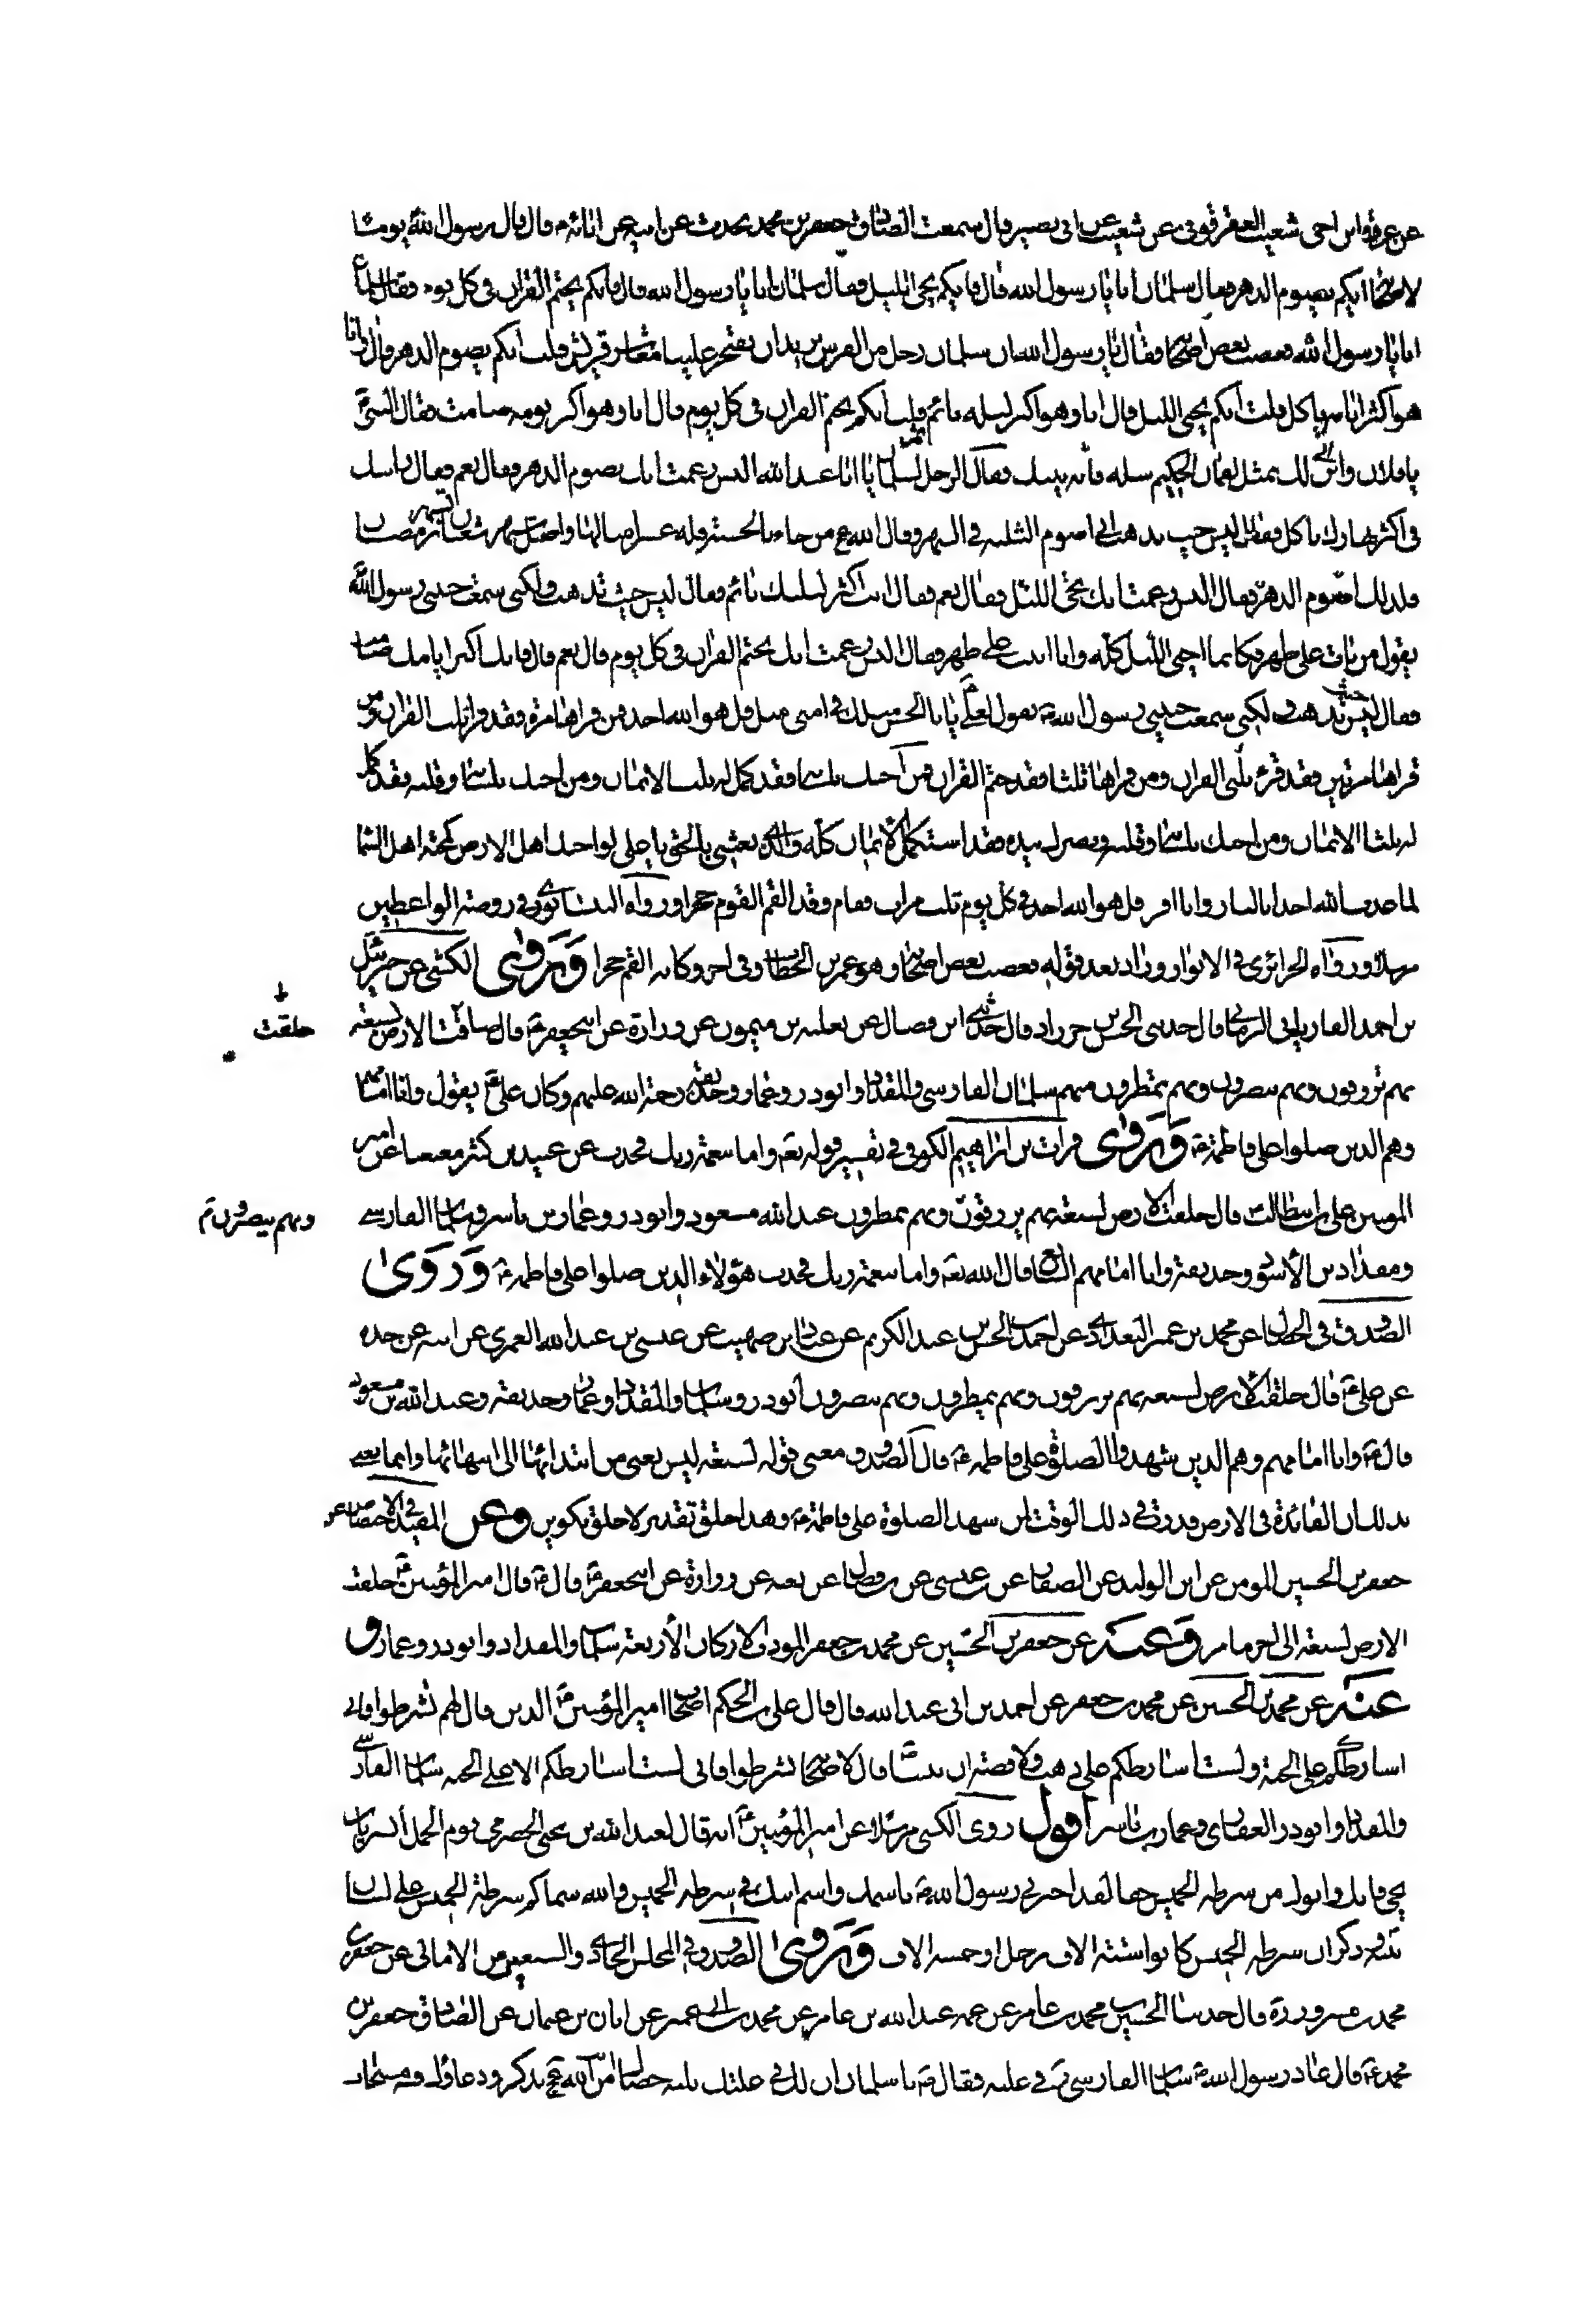 عن عروة ابن اخى شعيب العقرقوفى عن شعيب عن ابى بصير قال سمعت الصادق جعفر بن محمد يحدث عن ابيه عن ابائه ع قال قال رسول الله يوما
لاصحابه ايكم يصوم الدهر فقال سلمان انا يا رسول الله قال فايكم يحيى الليل فقال سلمان انا يا رسول الله قال فايكم يختم القران فى كل يوم فقال سلمان
انا يا رسول الله فغضب بعض اصحابه فقال يا رسول الله ان سلمان رجل من الفرس يريد ان يفتخر علينا معاشر قريش قلت ايكم يصوم الدهر فقال انا
هو اكثر ايامه ياكل قلت ايكم يحيى الليل قال انا وهو اكثر ليله نائم قلت ايكم يختم القران فى كل يوم قال انا وهو اكثر يومه صامت فقال النبى
يا فلان وانى لك بمثل لقمان الحكيم سله فانه ينبئك فقال الرجل لسلمان يا ابا عبد الله اليس زعمت انك تصوم الدهر فقال نعم فقال رايتك
فى اكثر نهارك تاكل فقال ليس حيث تذهب انى اصوم الثلثة فى الشهر وقال الله ع من جاء بالحسنة فله عشر امثالها واصل شهر شعبان برمضان
فذلك صوم الدهر فقال اليس زعمت انك تحيى الليل فقال نعم فقال انت اكثر ليلتك نائم فقال ليس حيث تذهب ولكنى سمعت حبيبى رسول الله
يقول من بات على طهر فكانما احيى الليل كله وانا ابيت على طهر فقال اليس زعمت انك تختم القران فى كل يوم قال نعم قال فانك اكثر ايامك صامت
فقال ليس حيث تذهب ولكنى سمعت حبيبى رسول الله ص يقول لعلى يا ابا الحسن مثلك فى امتى مثل قل هو الله احد من قراها مرة فقد قرا ثلث القران ومن
قراها مرتين فقد قرء ثلثى القران ومن قراها ثلثا فقد ختم القران فمن احبك بلسانه فقد كمل له ثلث الايمان ومن احبك بلسانه وقلبه فقد كمل
له ثلثا الايمان ومن احبك بلسانه وقلبه ونصرك بيده فقد استكمل الايمان كله والذى بعثنى بالحق يا على لو احبك اهل الارض كمحبة اهل السماء
لما عذب الله احدا بالنار وانا اقرء قل هو الله احد فى كل يوم ثلث مرات فقام وقد القم القوم حجرا ورواه النيسابورى فى روضة الواعظين
مرسلا ورواه الجزائرى فى الانوار وزاد بعد قوله فغضب بعض اصحابه وهو عمر بن الخطاب وفى اخره وكانه القم حجرا وروى الكشى عن جبرئيل
بن احمد الفاريابى البرنانى قال حدثنى الحسن بن خرزاد قال حدثنى ابن فضال عن ثعلبة بن ميمون عن زرارة عن ابى جعفر ع قال ضاقت الارض بسبعة
خلقت
بهم ترزقون وبهم تنصرون وبهم تمطرون منهم سلمان الفارسى والمقداد وابوذر وعمار وحذيفة رحمة الله عليهم وكان على ع يقول وانا امامهم
وهم الذين صلوا على فاطمة ع وروى فرات بن ابراهيم الكوفى فى تفسير قوله تعالى واما بنعمة ربك فحدث عن عبيد بن كثير معنعنا عن امير
المومنين على بن ابيطالب قال خلقت الارض لسبعة بهم يرزقون وبهم يمطرون عبد الله مسعود وابوذر وعمار بن ياسر وسلمان الفارسى
وبهم ينصرون
ومقداد بن الاسود وحذيفة وانا امامهم السابع قال الله تعالى واما بنعمة ربك فحدث هؤلاء الذين صلوا على فاطمة ع وروى
الصدوق فى الخصال عن محمد بن عمر البغدادى عن احمد بن الحسن بن عبد الكريم عن عباد بن صهيب عن عيسى بن عبد الله العمرى عن ابيه عن جده
عن على ع قال خلقت الارض لسبعة بهم يرزقون وبهم يمطرون وبهم ينصرون ابوذر وسلمان والمقداد وعمار وحذيفة وعبد الله بن مسعود
قال ع وانا امامهم وهم الذين شهدوا الصلوة على فاطمة ع قال الصدوق معنى قوله لسبعة ليس يعنى من ابتدائها الى انتهائها وانما يعنى
بذلك ان الفائدة فى الارض قدرت فى ذلك الوقت لمن شهد الصلوة على فاطمة ع وهذا خلق تقدير لا خلق تكوين وعن المفيد فى الاختصاص عن
جعفر بن الحسين المومن عن ابن الوليد عن الصفار عن ابن عيسى عن ابن فضال عن ثعلبة عن زرارة عن ابى جعفر ع قال ع قال امير المؤمنين ع خلقت
الارض لسبعة الى اخر ما مر وعنه عن جعفر بن الحسين عن محمد بن جعفر المودب الاركان الاربعة سلمان والمقداد وابوذر وعمار و
عنه عن محمد بن الحسين عن محمد بن جعفر عن احمد بن ابى عبد الله قال قال على بن الحكم اصحاب امير المؤمنين ع الذين قال لهم تشرطوا فانى
اشارطكم على الجنة ولست اشارطكم على ذهب ولا فضة ان نبينا قال لاصحابه تشرطوا فانى لست اشارطكم الا على الجنة سلمان الفارسى
والمقداد وابوذر الغفارى وعمار بن ياسر اقول روى الكشى مرسلا عن امير المؤمنين ع انه قال لعبد الله بن يحيى الحضرمى يوم الجمل ابشر يابن
يحيى فانك واباك من شرطة الخميس حقا لقد اخبرنى رسول الله ص باسمك واسم ابيك فى شرطة الخميس والله سماكم شرطة الخميس على لسان
نبيه وذكر ان شرطة الخميس كانوا ستة الاف رجل او خمسة الاف وروى الصدوق فى المجلس الحادى والسبعين من الامالى عن جعفر بن
محمد بن مسرور ره قال حدثنا الحسين بن محمد بن عامر عن عمه عبد الله بن عامر عن محمد بن ابى عمير عن ابان بن عثمان عن الصادق جعفر بن
محمد ع قال عاد رسول الله ص سلمان الفارسى ره فى علته فقال ص يا سلمان ان لك فى علتك ثلث خصال انت من الله ع بذكر ودعاؤك فيه مستجاب